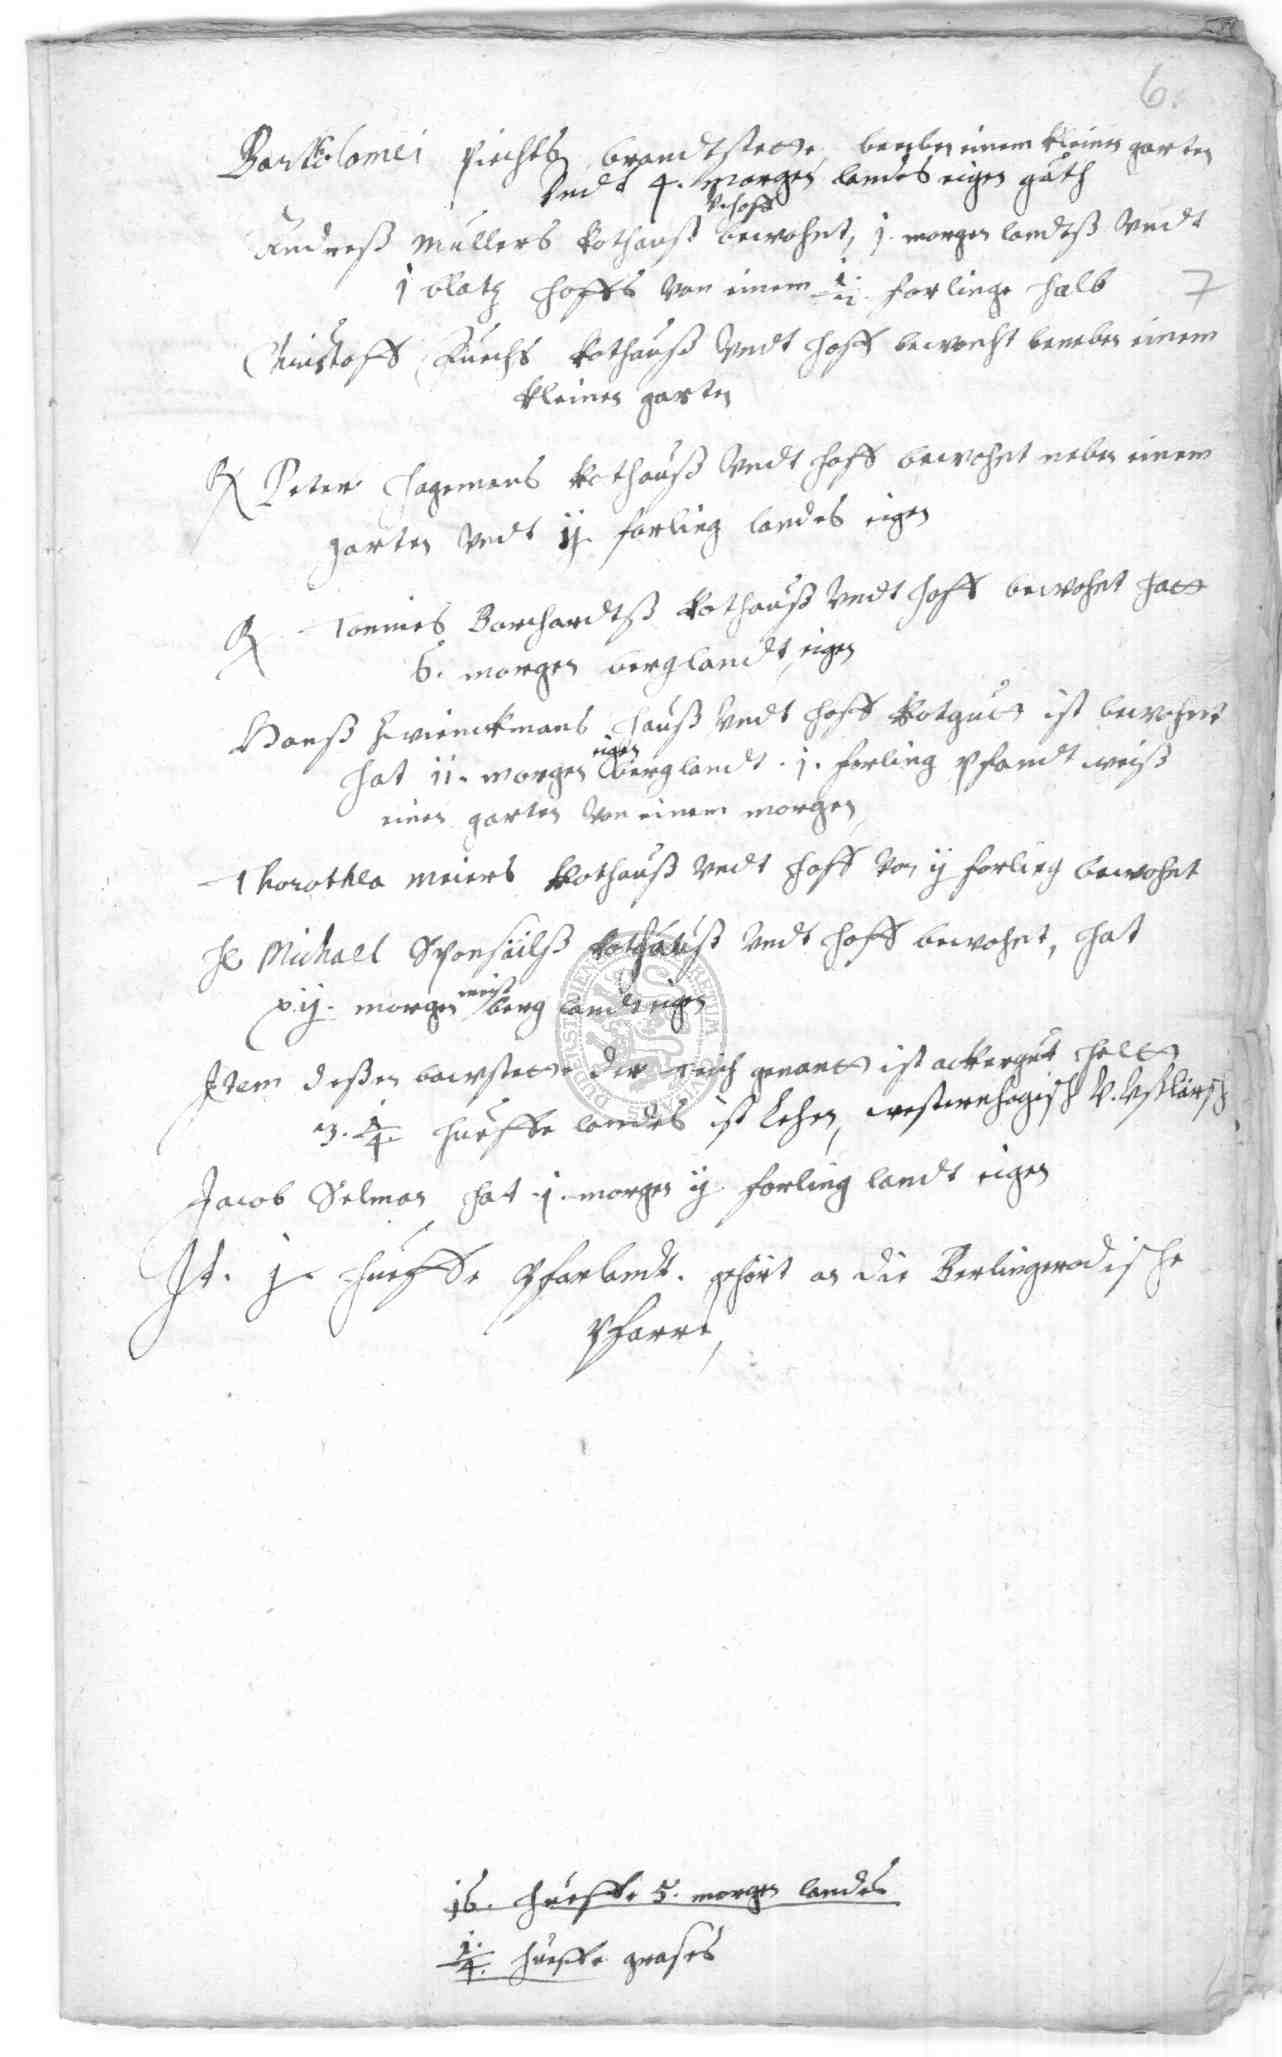 6.
Bartholomei Fiechts brandtstette beneben einem kleinen garten
Undt 4. morgen landes eigen guth
V. hoff
Andreß Müllers kothauß bewohnt, j. morgen landtß Undt
1 blatz hoffs von einem forlinge halb
7
Christoff Fuchs kothauß Undt hoff bewonht beneben einem
kleinen garten
Peter Hagemans kothauß Undt hoff bewohnt neben einem
garten Undt ij forling landes eigen
Tonnies Borchardtß kothauß Undt hoff bewohnt hatt
6. morgen berglandt eigen
Hanß Zwenckmans hauß Undt hoff kotgutt ist bewohnt
eigen
hat 11. morgen berglandt . j. forling pfandt weiß
einen garten von einem morgen,
Thorothea Meiers kothauß Undt hoff von ij forling bewohnt
Michael kothauß Undt hoff bewohnt, hat
meist
xij. morgen berg landt eigen
Item deßen bawstette der teich genant ist ackergut helt
3. 1/4 hueffe landes ist Lehen, westernhagisch V. Ußlarsch
Jacob Selman hat j. morgen ij forling landt eigen
It. j. hueffe Pfarlandt. gehört an die Berlingerodische
Pfarre,
16. hueffe 5. morgen landes
1/4. hueffe grases
6